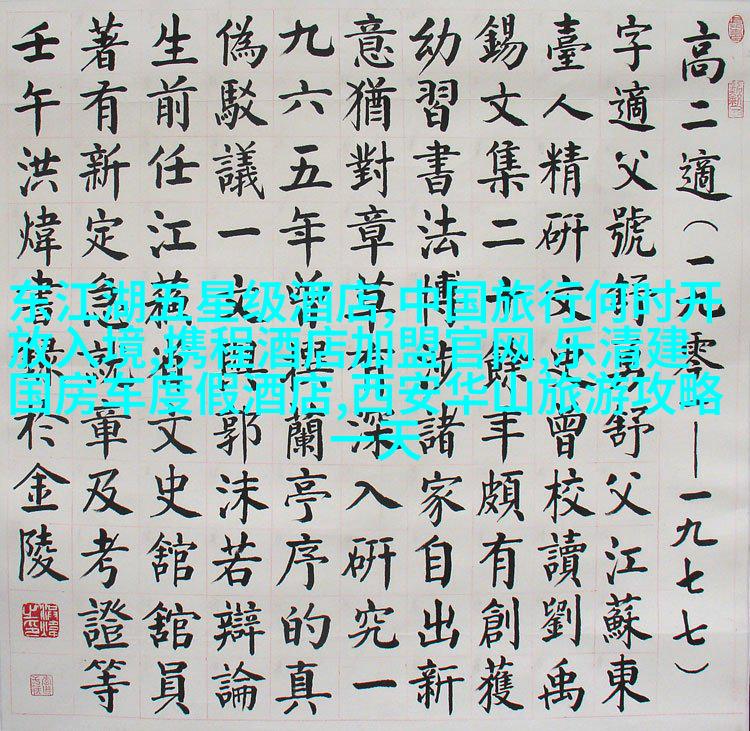 高二適（一九零一—一九七七）
字適父號舒父江蘇東
臺人精研文史曾校讀劉禹
錫文集二十餘年頗有創獲
幼習書法博涉諸家自出新
意猶對章草有深入研究一
九六五年曾撰蘭亭序的真
偽駁議一文與郭沫若辯論
生前任江蘇省文史館館員
著有新定急就章及考證等
壬午洪煒書錄於金陵
东江湖五星级酒店,中国旅行何时开
放入境,携程酒店加盟官网,乐清建
国房车度假酒店,西安华山旅游攻略
一天